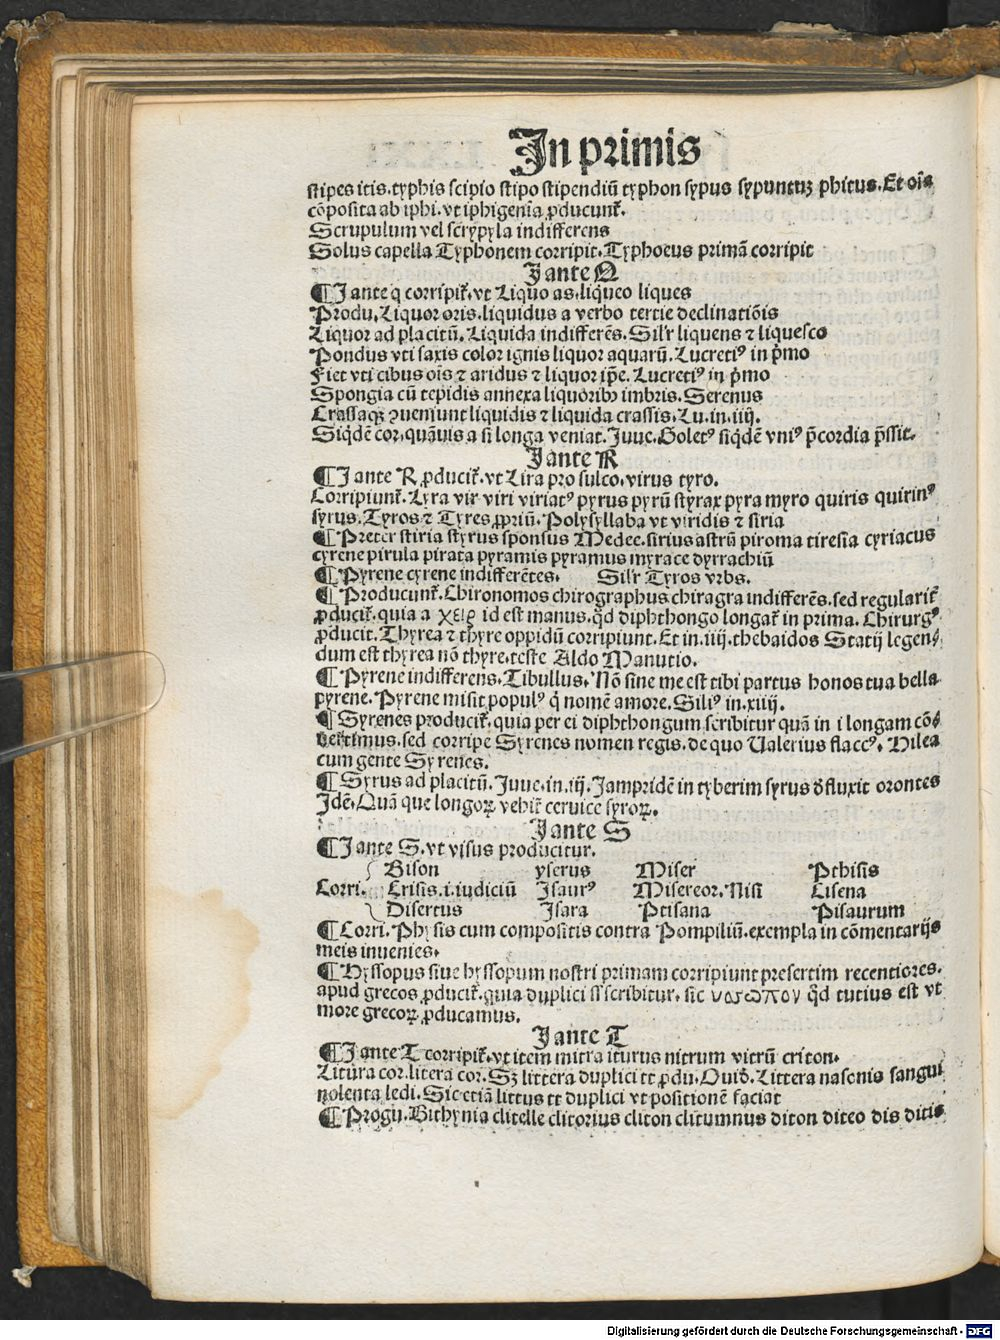 In primis
stipes itis. typhis scipio stipo stipendiū typhon sypus sypuntuꝫ phitus. Et oīs
cōposita ab iphi. vt iphigenia ꝓducunt̄.
Scrupulum vel scrypyla indifferens
Solus capella Typhonem corripit. Typhoeus primā corripit
I ante Q
¶ I ante q corripit̄. vt Liquo as. liqueo liques
Produ. Liquor oris. liquidus a verbo tertie declinatiōis
Liquor ad placitū. Liquida indifferēs. Sil'r liquens ⁊ liquesco
Pondus vti saxis color ignis liquor aquarū. Lucretiꝰ in p̄mo
Fiet vti cibus oīs ⁊ aridus ⁊ liquor ip̄e. Lucretiꝰ in p̄mo
Spongia cū tepidis annexa liquoribꝫ imbris. Serenus
Crassaqꝫ ꝯueniunt liquidis ⁊ liquida crassis. Lu. in. iiij.
Siq̄dē cor. quāuis a si longa veniat. Juue. Boletꝰ siq̄dē vniꝰ p̄cordia p̄ssit.
I ante R
¶ I ante R ꝓducit̄. vt Lira pro sulco. virus tyro.
Corripiunt̄. Lyra vir viri viriatꝰ pyrus pyrū styrax pyra myro quiris quirinꝰ
syrus. Tyros ⁊ Tyres ꝓpriū. Polysyllaba vt viridis ⁊ siria
¶ Preter stiria styrus sponsus Medee. sirius astrū piroma tiresia cyriacus
cyrene pirula pirata pyramis pyramus myrace dyrrachiū
¶ Pyrene cyrene indifferētes. Sil'r Tyros vrbs.
¶ Producunt̄. Chironomos chirographus chiragra indifferēs. sed regularit̄
ꝓducit̄. quia a χειρ id est manus. q̄d diphthongo longat̄ in prima. Chirurgꝰ
ꝓducit. Thyrea ⁊ thyre oppidū corripiunt. Et in. iiij. thebaidos Statij legen⸗
dum est thyrea nō thyre. teste Aldo Manutio.
¶ Pyrene indifferens. Tibullus. Nō sine me est tibi partus honos tua bella
pyrene. Pyrene misit populꝰ q̄ nomē amore. Siliꝰ in. xiiij.
¶ Syrenes producit̄. quia per ei diphthongum scribitur quā in i longam cō⸗
uertimus. sed corripe Syrenes nomen regis. de quo Ualerius flaccꝰ. Hilea
cum gente Syrenes.
¶ Syrus ad placitū. Juue. in. iij. Jampridē in tyberim syrus d̄fluxit orontes
Idē. Quā que longoꝝ vehit̄ ceruice syroꝝ.
I ante S
¶ I ante S. vt visus producitur.
Bison yserus Miser Pthisis
Corri. Crisis. i. iudiciū Isaurꝰ Misereor. Nisi Cisena
Disertus Isara Ptisana Pisaurum
¶ Corri. Physis cum compositis contra Pompiliū. exempla in cōmentarijs
meis inuenies.
¶ Hyssopus siue hyssopum nostri primam corripiunt presertim recentiores.
apud grecos ꝓducit̄. quia duplici ss scribitur. sic υσσωπου q̄d tutius est vt
more grecoꝝ ꝓducamus.
I ante T
¶ I ante T corripit̄. vt item mitra iturus nitrum vitrū criton.
Litura cor. litera cor. Sꝫ littera duplici tt ꝓdu. Ouid. Littera nasonis sangui
nolenta ledi. Sic etiā littus tt duplici vt positionē faciat
¶ Progu. Bithynia clitelle clitorius cliton clitumnus diton diteo dis ditis
Digitalisierung gefördert durch die Deutsche Forschungsgemeinschaft - DFG